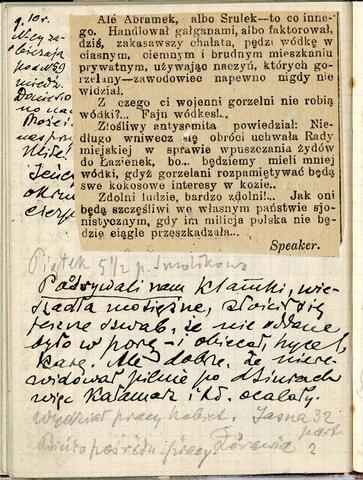 9. 10 r.
Alé Abramek, albo Srulek—to co inne-
go. Handlował gałganami, albo faktorował,
dziś, zakasawszy chałata, pędzi wódkę w
ciasnym, ciemnym i brudnym mieszkaniu
prywatnym, używając naczyń, których go-
rzelany—zawodowiec napewno nigdy nie
widział.
Z czego ci wojenni gorzelni nie robią
wódki?... Fajn wódkes!..
Złośliwy antysemita powiedział: Nie-
długo wniwecz się obróci uchwała Rady
miejskiej w sprawie wpuszczania żydów
do Łazienek, bo... będziemy mieli mniej
wódki, gdyż gorzelani rozpamiętywać będą
swe kokosowe interesy w kozie..
Zdolni ludzie, bardzo zdolni!... Jak oni
będą szczęśliwi we własnym państwie sjo-
nistycznym, gdy im milicja polska nie bę-
dzie ciągle przęszkadzała...
Speaker.
Piątek 5/2 p. Smolikowa
nam klamki,
mosiężne, złościł się
jeszcze szwab, że nie oddane
było w porę – i obiecał
karę. Ale dobrze, że nie re-
widował pilnie po dziurach
więc kałamarz i t d. ocalały.
Wydział pracy kobiet. Jasna 32
Biuro pośredn. pracy Żórawia
2